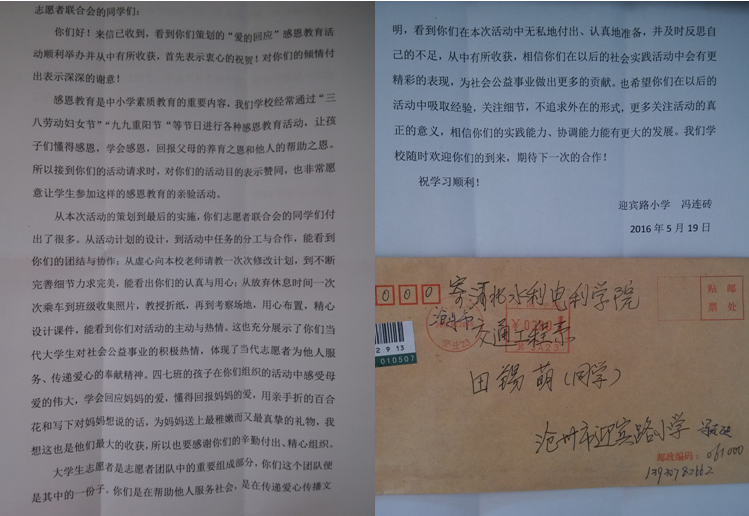 志愿者联合会的同学们：
你们好！来信已收到，看到你们策划的“爱的回应”感恩教育活
动顺利举办并从中有所收获，首先表示衷心的祝贺！对你们的倾情付
出表示深深的谢意！
感恩教育是中小学素质教育的重要内容，我们学校经常通过“三
八劳动妇女节”“九九重阳节“等节日进行各种感恩教育活动，让孩
子们懂得感恩，学会感恩，回报父母的养育之恩和他人的帮助之恩。
所以接到你们的活动请求时，对你们的活动目的表示赞同，也非常愿
意让学生参加这样的感恩教育的亲验活动。
从本次活动的策划到最后的实施，你们志愿者联合会的同学们付
出了很多。从活动计划的设计，到活动中任务的分工与合作，能看到
你们的团结与协作；从虚心向本校老师请教一次次修改计划，到不断
完善细节力求完美，能看出你们的认真与用心；从放弃休息时间一次
次乘车到班级收集照片，教授折纸，再到考察场地，用心布置，精心
设计课件，能看到你们对活动的主动与热情。这也充分展示了你们当
代大学生对社会公益事业的积极热情，体现了当代志愿者为他人服
务、传递爱心的奉献精神。四七班的孩子在你们组织的活动中感受母
爱的伟大，学会回应妈妈的爱，懂得回报妈妈的爱，用亲手折的百合
花和写下对妈妈想说的话，为妈妈送上最稚嫩而又最真挚的礼物，我
想这也是他们最大的收获，所以也要感谢你们的辛勤付出、精心组织。
大学生志愿者是志愿者团队中的重要组成部分，你们这个团队便
是其中的一份子。你们是在帮助他人服务社会，是在传递爱心传播文
明，看到你们在本次活动中无私地付出、认真地准备，并及时反思自
己的不足，从中有所收获，相信你们在以后的社会实践活动中会有更
精彩的表现，为社会公益事业做出更多的贡献。也希望你们在以后的
活动中吸取经验，关注细节，不追求外在的形式，更多关注活动的真
正的意义，相信你们的实践能力、协调能力能有更大的发展。我们学
校随时欢迎你们的到来，期待下一次的合作！
祝学习顺利！
迎宾路小学 冯连砖
2016 年 5 月 19 日
000
贴 邮
票 处
寄:河北水利电利学院
沧州市
交通工程系
2 9 13
010507
田锡萌(同学)
沧州市迎宾路小学
邮政编码：061000